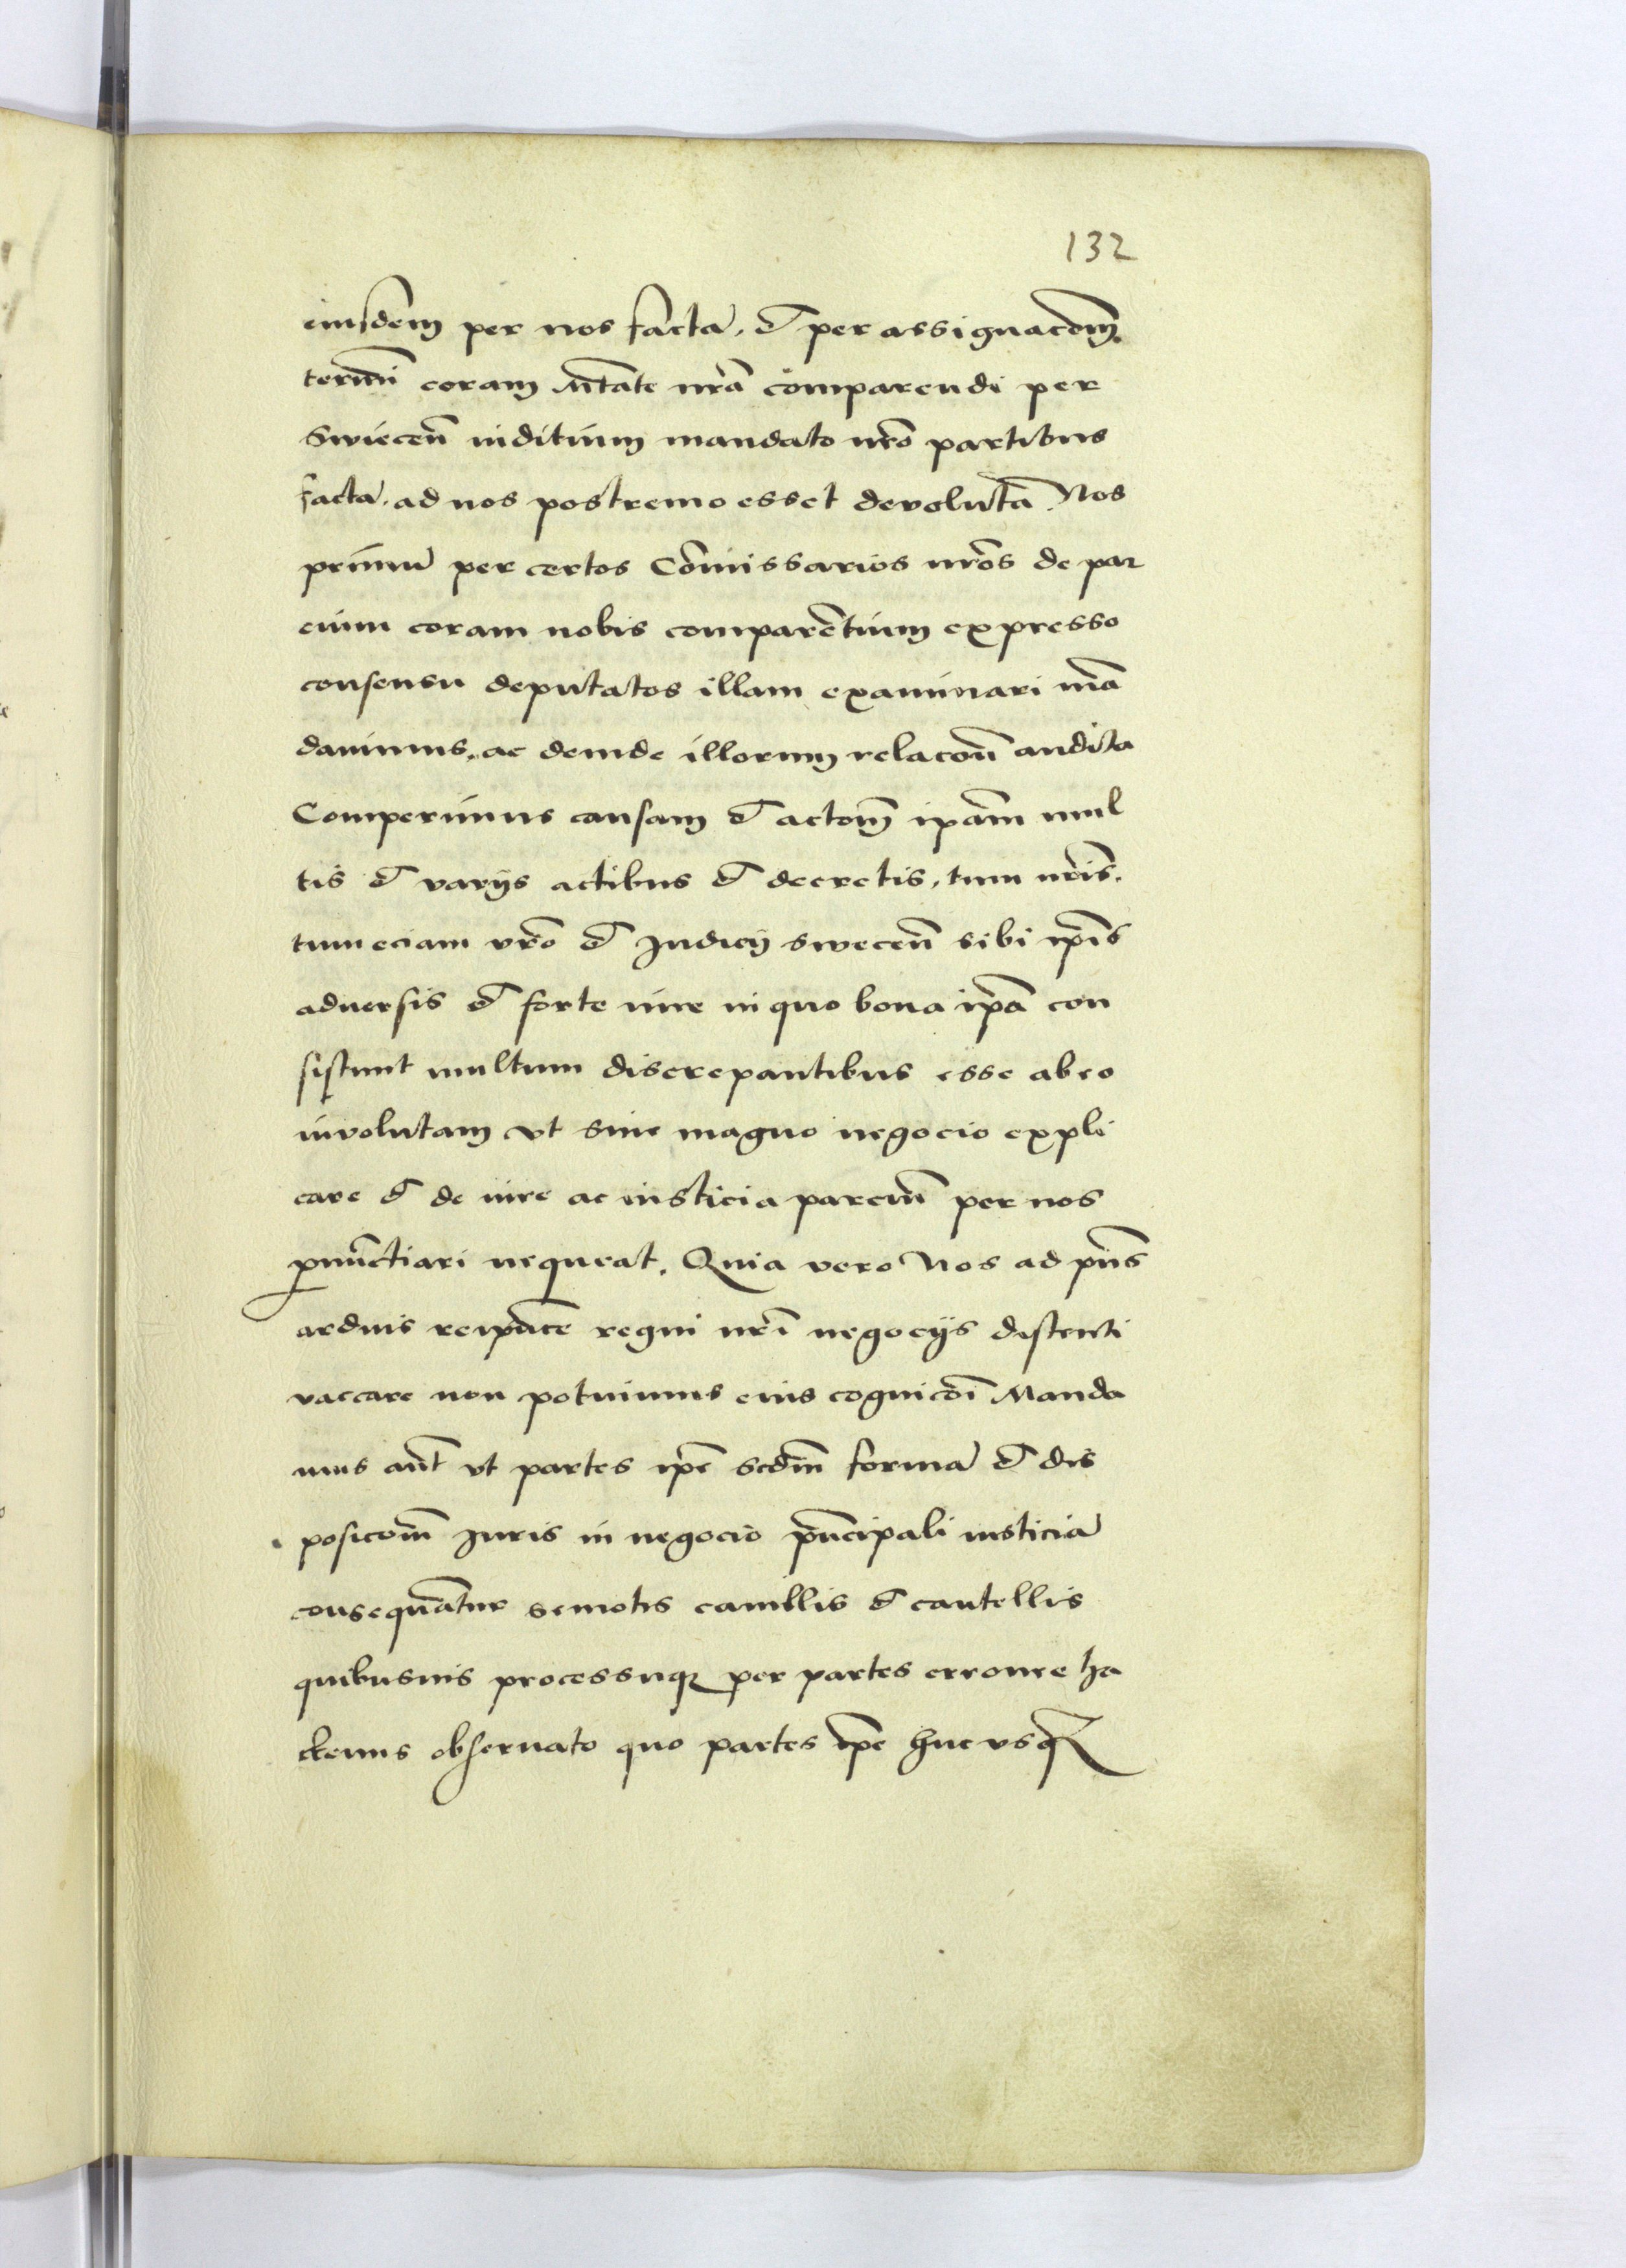 132
eiusdem per nos facta͂, et per assignacōm
terminī coram Mtate nr̄a comparendi per
Swiecen̄ iuditium mandato nr̄o partibus
facta͂, ad nos postremo esset devoluta. Nos
primum per certos Com̄issarios nr̄os de par
cium coram nobis comparētium expresso
consensu deputatos illam examinari mā
dauimus, ac deinde illorum relacōn audita
Comperimus causam et actōm ip̄am mul
tis et varijs actibus et decretis, tum nr̄is,
tum eciam vr̄o et Judicij swecen̄ sibi ip̄is
aduersis et forte iure in quo bona ip̄a con
sistunt multum discrepantibus esse ab eo
involutam vt sine magno negocio expli
care et de iure ac iusticia parcīm per nos
ꝓnūctiari nequeat. Quia vero Nos ad pn̄s
arduis reip̄ance regni nr̄i negocijs distenti
vaccare non potuimus eius cognicōi Manda
mus aūt vt partes ip̄e scdm̄ forma͂ et dis
posicōm Juris in negocio prn̄cipali iusticia͂
consequātur semotis cauillis et cautellis
quibusuis processuqꝫ per partes erronee ha
ctenus obseruato quo partes ip̄e huc vsqꝫ